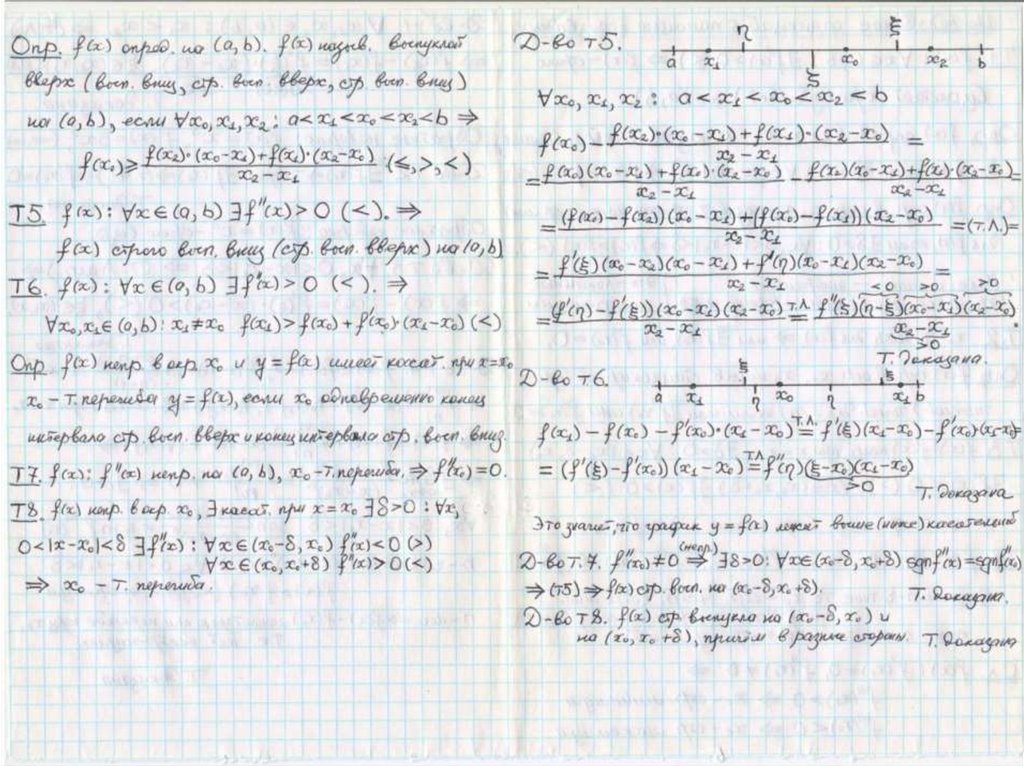 Опр. f(x) опред. на (a, b). f(x) назыв. выпуклой
вверх (вып. вниз, стр. вып. вверх, стр. вып. вниз)
на (a, b), если ∀x₀, x₁, x₂: a < x₁ < x₀ < x₂ < b ⇒
f(x₀) ≥ (f(x₂)·(x₀-x₁)+f(x₁)·(x₂-x₀))/(x₂-x₁) (≤, >, <)
Т5. f(x): ∀x∈(a, b) ∃f''(x) > 0 (<). ⇒
f(x) строго вып. вниз (стр. вып. вверх) на (a, b)
Т6. f(x): ∀x∈(a, b) ∃f''(x) > 0 (<). ⇒
∀x₀, x₁∈(a, b): x₁≠x₀ f(x₁) > f(x₀) + f'(x₀)·(x₁-x₀) (<)
Опр. f(x) непр. в окр. x₀ и y = f(x) имеет касат. при x = x₀
x₀ - т. перегиба y = f(x), если x₀ одновременно конец
интервала стр. вып. вверх и конец интервала стр. вып. вниз.
Т7. f(x): f''(x) непр. на (a, b), x₀ - т. перегиба. ⇒ f''(x₀) = 0.
Т8. f(x) непр. в окр. x₀, ∃ касат. при x = x₀ ∃δ>0 : ∀x,
0<|x-x₀|<δ ∃f''(x) : ∀x∈(x₀-δ, x₀) f''(x)<0 (>)
∀x∈(x₀, x₀+δ) f''(x)>0 (<)
⇒ x₀ - т. перегиба.
Д-во т5.
η ξ
a x₁ ξ x₀ x₂ b
∀x₀, x₁, x₂ : a < x₁ < x₀ < x₂ < b
f(x₀) - (f(x₂)·(x₀-x₁)+f(x₁)·(x₂-x₀))/(x₂-x₁) =
= (f(x₀)(x₀-x₁)+f(x₀)·(x₂-x₀))/(x₂-x₁) - (f(x₂)(x₀-x₁)+f(x₁)·(x₂-x₀))/(x₂-x₁) =
= ((f(x₀)-f(x₂))(x₀-x₁)+(f(x₀)-f(x₁))(x₂-x₀))/(x₂-x₁) = (т.Л.) =
= (f'(ξ)(x₀-x₂)(x₀-x₁)+f'(η)(x₀-x₁)(x₂-x₀))/(x₂-x₁) =
<0 >0 >0
= ((f'(η)-f'(ξ))(x₀-x₁)(x₂-x₀))/(x₂-x₁) =т.Л.= (f''(ξ)(η-ξ)(x₀-x₁)(x₂-x₀))/(x₂-x₁).
>0
Т. доказана.
Д-во т.6.
ξ ξ
a x₁ η x₀ η x₁ b
f(x₁) - f(x₀) - f'(x₀)·(x₁-x₀) =т.Л.= f'(ξ)(x₁-x₀) - f'(x₀)·(x₁-x₀) =
= (f'(ξ)-f'(x₀))(x₁-x₀) =т.Л= f''(η)(ξ-x₀)(x₁-x₀)
>0
Т. доказана
Это значит, что график y = f(x) лежит выше (ниже) касательной
Д-во т.7. f''(x₀) ≠ 0 (непр.) ⇒ ∃δ>0: ∀x∈(x₀-δ, x₀+δ) sgnf''(x) = sgnf''(x₀)
⇒ (т5) ⇒ f(x) стр. вып. на (x₀-δ, x₀+δ). Т. доказана.
Д-во т.8. f(x) стр. выпукла на (x₀-δ, x₀) и
на (x₀, x₀+δ), причём в разные стороны. Т. доказана